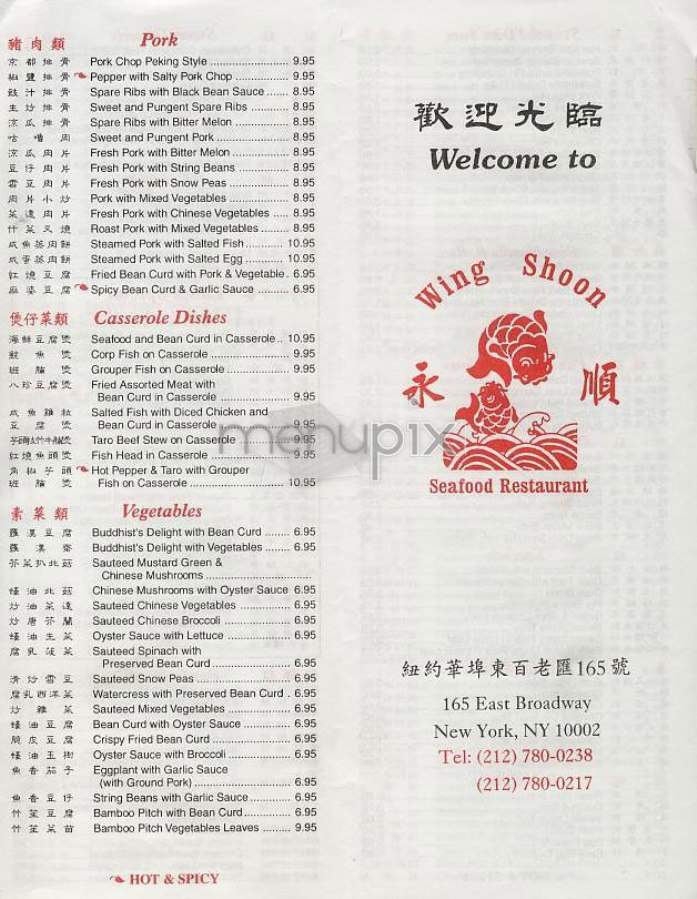 豬肉類 Pork
京都排骨 Pork Chop Peking Style .......................... 9.95
椒鹽排骨 Pepper with Salty Pork Chop .................. 9.95
豉汁排骨 Spare Ribs with Black Bean Sauce ....... 8.95
生炒排骨 Sweet and Pungent Spare Ribs ............ 8.95
涼瓜排骨 Spare Ribs with Bitter Melon .................. 8.95
咕嚕肉 Sweet and Pungent Pork ......................... 8.95
涼瓜肉片 Fresh Pork with Bitter Melon ................... 8.95
豆仔肉片 Fresh Pork with String Beans ................. 8.95
雪豆肉片 Fresh Pork with Snow Peas .................... 8.95
肉片小炒 Pork with Mixed Vegetables .................... 8.95
菜遠肉片 Fresh Pork with Chinese Vegetables ..... 8.95
什菜叉燒 Roast Pork with Mixed Vegetables ......... 8.95
咸魚蒸肉餅 Steamed Pork with Salted Fish ............ 10.95
咸蛋蒸肉餅 Steamed Pork with Salted Egg ............. 10.95
紅燒豆腐 Fried Bean Curd with Pork & Vegetable . 6.95
麻婆豆腐 Spicy Bean Curd & Garlic Sauce .......... 6.95
煲仔菜類 Casserole Dishes
海鮮豆腐煲 Seafood and Bean Curd in Casserole .. 10.95
魚煲 Corp Fish on Casserole .......................... 9.95
班腩煲 Grouper Fish on Casserole ..................... 9.95
八珍豆腐煲 Fried Assorted Meat with
Bean Curd in Casserole ....................... 9.95
咸魚雞粒 Salted Fish with Diced Chicken and
豆腐煲 Bean Curd in Casserole ....................... 9.95
Taro Beef Stew on Casserole ................. 9.95
紅燒魚頭煲 Fish Head in Casserole ........................... 9.95
角椒芋頭 Hot Pepper & Taro with Grouper
班腩煲 Fish on Casserole ................................ 10.95
素菜類 Vegetables
羅漢豆腐 Buddhist's Delight with Bean Curd ........ 6.95
羅漢齋 Buddhist's Delight with Vegetables ........ 6.95
芥菜扒北菇 Sauteed Mustard Green &
Chinese Mushrooms ...................................
蠔油北菇 Chinese Mushrooms with Oyster Sauce 6.95
炒油菜遠 Sauteed Chinese Vegetables ................ 6.95
炒唐芥蘭 Sauteed Chinese Broccoli ..................... 6.95
蠔油生菜 Oyster Sauce with Lettuce .................... 6.95
腐乳菠菜 Sauteed Spinach with
Preserved Bean Curd .......................... 6.95
清炒雪豆 Sauteed Snow Peas .............................. 6.95
腐乳西洋菜 Watercress with Preserved Bean Curd . 6.95
炒雜菜 Sauteed Mixed Vegetables .................... 6.95
蠔油豆腐 Bean Curd with Oyster Sauce ............... 6.95
脆皮豆腐 Crispy Fried Bean Curd ......................... 6.95
蠔油玉樹 Oyster Sauce with Broccoli .................... 6.95
魚香茄子 Eggplant with Garlic Sauce
(with Ground Pork) ............................... 6.95
魚香豆仔 String Beans with Garlic Sauce ............. 6.95
竹笙豆腐 Bamboo Pitch with Bean Curd ............... 9.95
竹笙菜苗 Bamboo Pitch Vegetables Leaves ......... 9.95
HOT & SPICY
歡迎光臨
Welcome to
Wing Shoon
永 順
Seafood Restaurant
紐約華埠東百老匯165號
165 East Broadway
New York, NY 10002
Tel: (212) 780-0238
(212) 780-0217
menupix